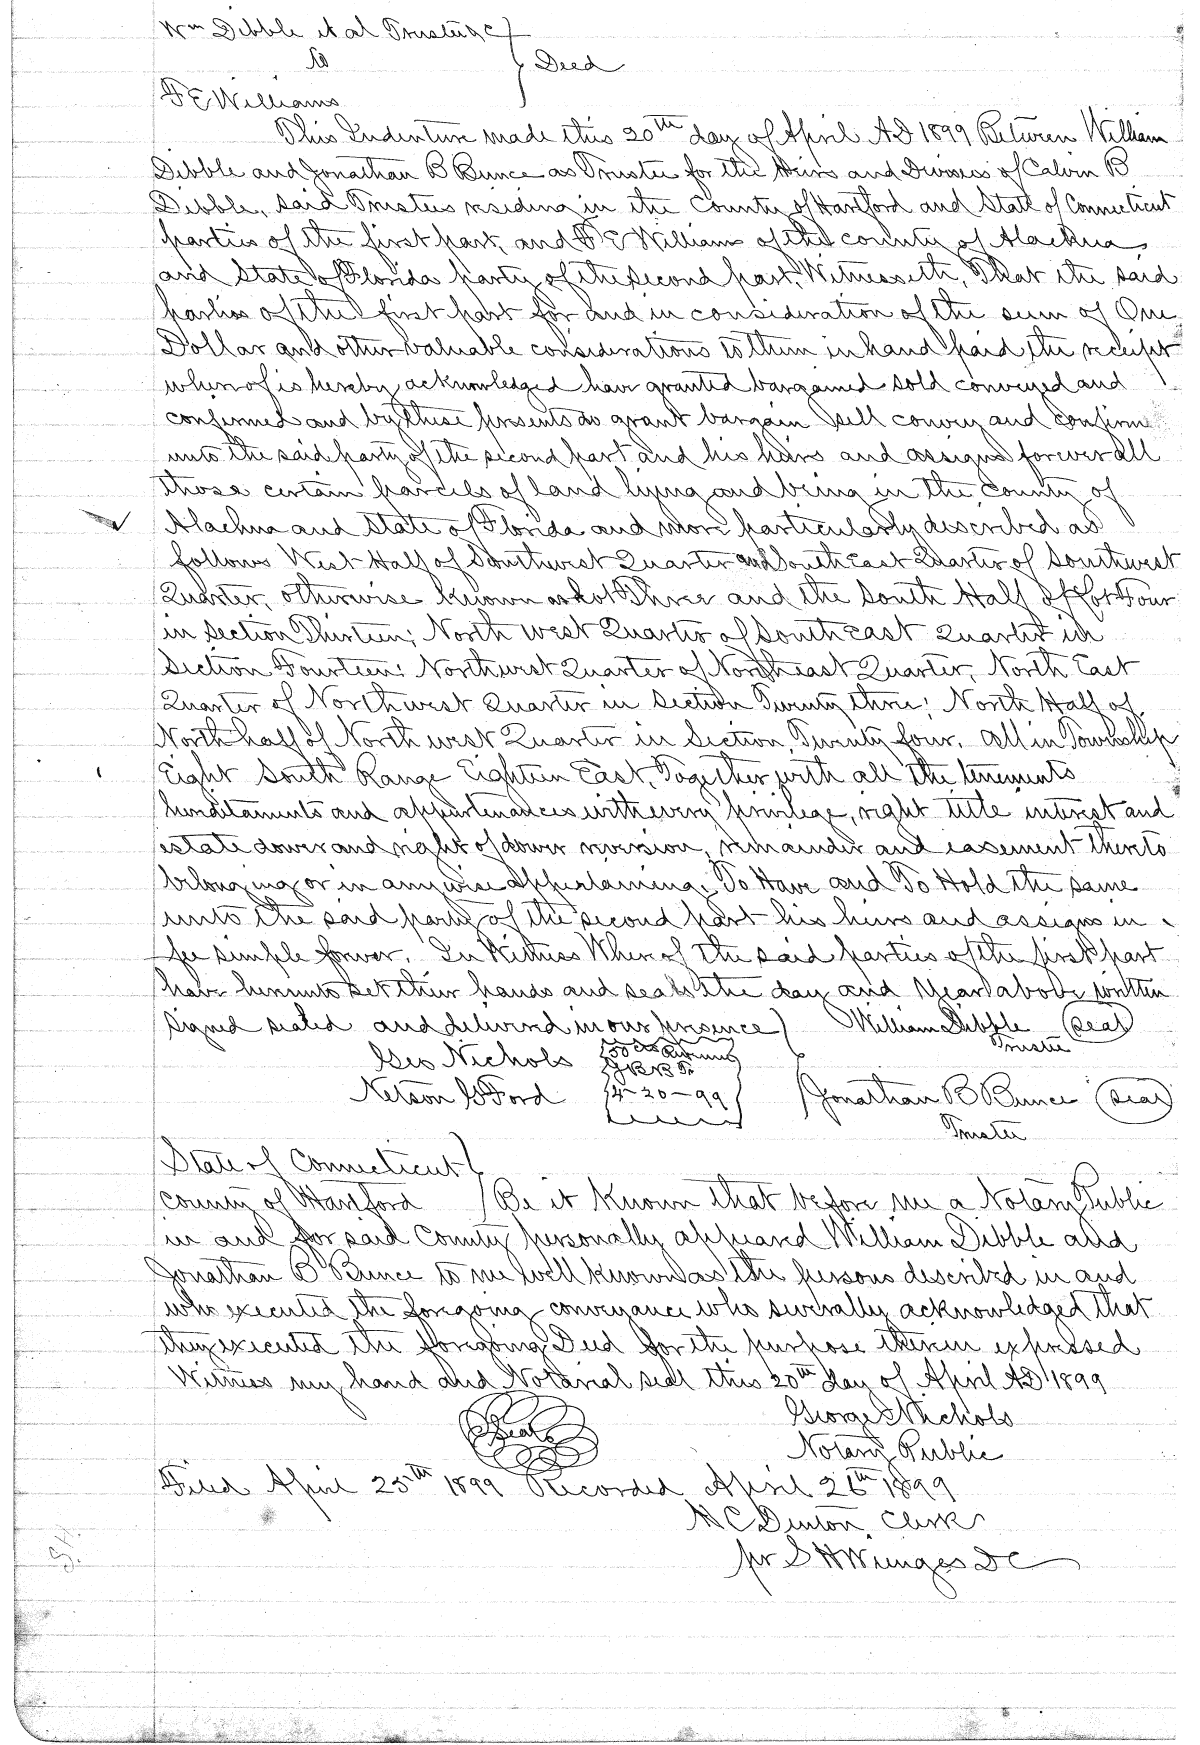 Wm Dibble et al Trustees &c
to } Deed
F E Williams
This Indenture made this 20th day of April AD 1899 Between William
Dibble and Jonathan B Bunce as Trustee for the Heirs and Divisees of Calvin B
Dibble, said Trustees residing in the County of Hartford and State of Connecticut
parties of the first part, and F E Williams of the county of Alachua
and State of Florida party of the second part, Witnesseth, That the said
parties of the first part for and in consideration of the sum of One
Dollar and other valuable considerations to them in hand paid the receipt
where of is hereby acknowledged have granted bargained sold conveyed and
confirmed and by these presents do grant bargain sell convey and confirm
unto the said party of the second part and his heirs and assigns forever all
those certain parcels of land lying and being in the County of
Alachua and State of Florida and more particularly described as
follows West Half of Southwest Quarter and South East Quarter of Southwest
Quarter, otherwise known as Lot Three and the South Half of Lot Four
in Section Thirteen; North west Quarter of South East Quarter in
Section Fourteen: Northwest Quarter of Northeast Quarter, North East
Quarter of Northwest Quarter in Section Twenty three; North Half of
North half of North west Quarter in Section Twenty four. All in Township
Eight South Range Eighteen East, Together with all the tenements
hereditaments and appurtenances with every privilege, right title interest and
estate dower and right of dower reversion, remainder and easement thereto
belonging or in anywise appertaining. To Have and To Hold the same
unto the said party of the second part his heirs and assigns in
fee simple forever. In Witness Where of the said parties of the first part
have hereunto set their hands and seals the day and year above written
Signed sealed and delivered in our presence } William Dibble (seal)
Trustee
Geo Nichols 50 cts
J B B Tr
Nelson G Ford 4-20-99 Jonathan B Bunce (seal)
Trustee
State of Connecticut }
County of Hartford } Be it known that before me a Notary Public
in and for said County personally appeared William Dibble and
Jonathan B Bunce to me well known as the persons described in and
who executed the foregoing conveyance who severally acknowledged that
they executed the foregoing Deed for the purpose therein expressed
Witness my hand and Notarial seal this 20th day of April AD 1899
(Seal) George Nichols
Notary Public
Filed April 25th 1899 Recorded April 26th 1899
H C Denton, Clerk
pr S H Wienges DC